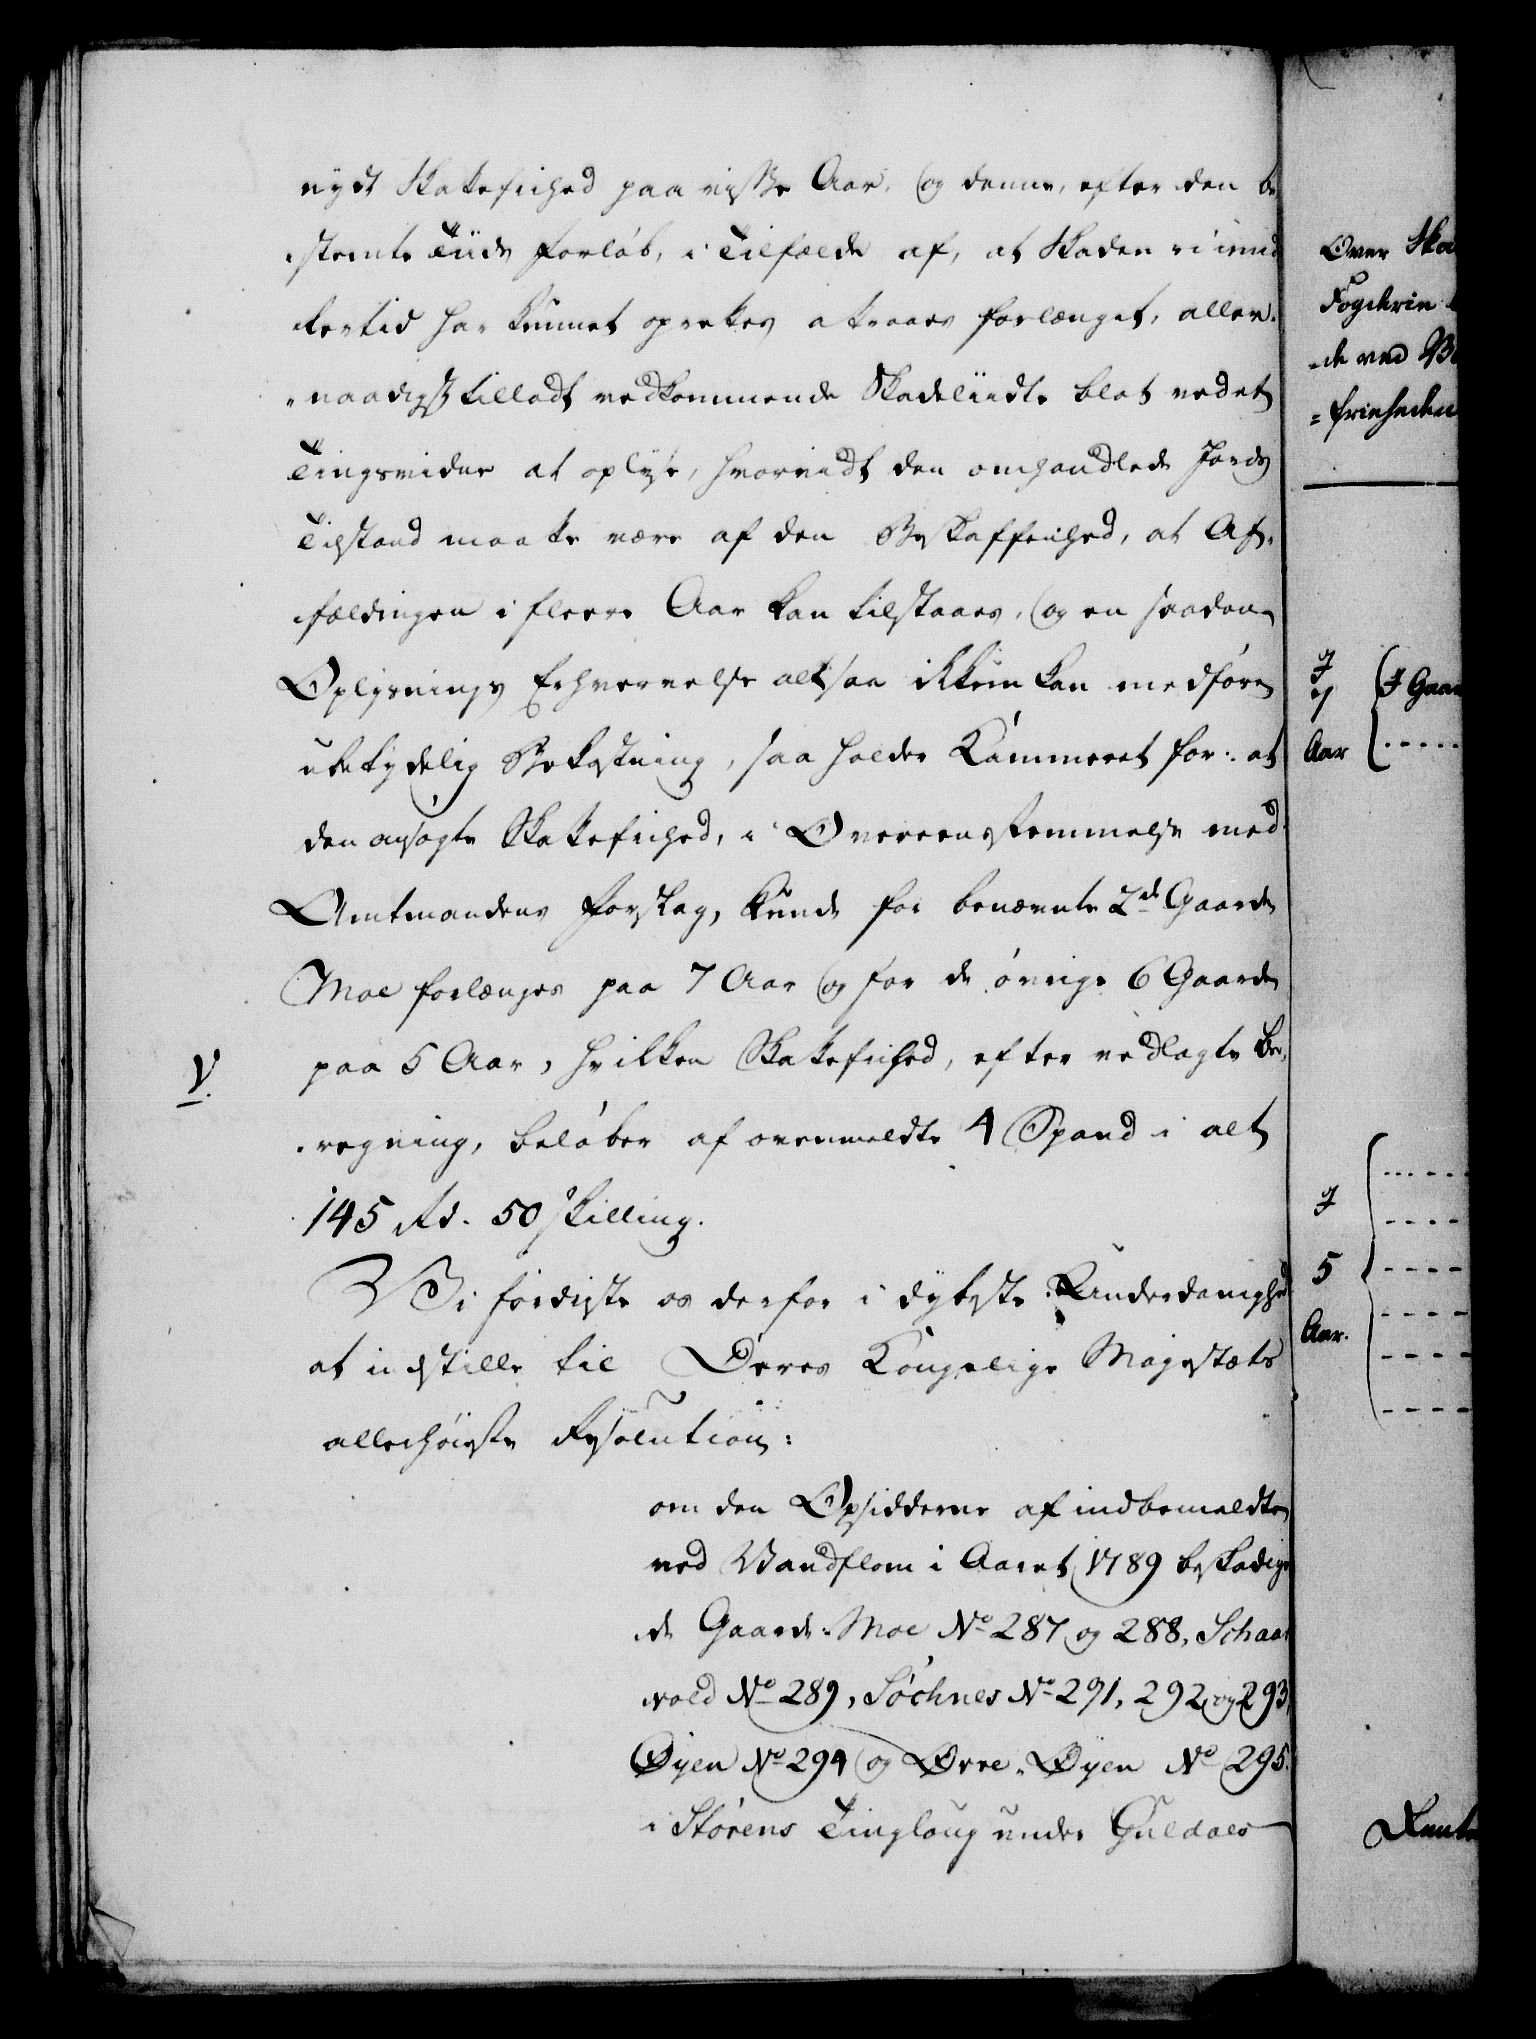 nydt Skatefrihed paa visse Aar, og denne, efter den be
stemte Tiids Forløb, i Tilfælde af, at Skaden ei imid
lertid har kunnet oprettes attraaes forlænget, aller-
naadigst tilladt vedkommende Skadeliidte blot ved et
Tingsvidne at oplyse, hvorvidt den omhandlede Jords
Tilstand maatte være af den Beskaffenhed, at Af-
fældingen i fleere Aar kan tilstaaes, og en saadan
Oplysnings Erhvervelse altsaa ikkun kan medføre
ubetydelig Bekostning, saa holder Kammeret for: at
den ansøgte Skatefrihed, i Overeensstemmelse med
Amtmandens Forslag, kunde for benævnte 2de Gaarde
Moe forlænges paa 7 Aar og for de øvrige 6 Gaarde
V.
paa 5 Aar, hvilken Skatefrihed, efter vedlagte Be-
regning, beløber af ovenmeldte 4 Spand i alt
145 Rd. 50 skilling.
Vi fordriste os derfor i dybeste Underdanighed
at indstille til Deres Kongelige Majestæts
allerhøieste Resolution:
om den Opsidderne af indbemeldte
ved Vandflom i Aaret 1789 beskadige
de Gaarde Moe No 287 og 288, Schaar
vold No 289, Søchnes No 291, 292 og 293,
Øyen No 294 og Øvre-Øyen No 295.
i Størens Tinglaug under Guldals
Over Ska
Fogderie
de ved
=friheden
7
Aar
Gaar
5
Aar.
Rente